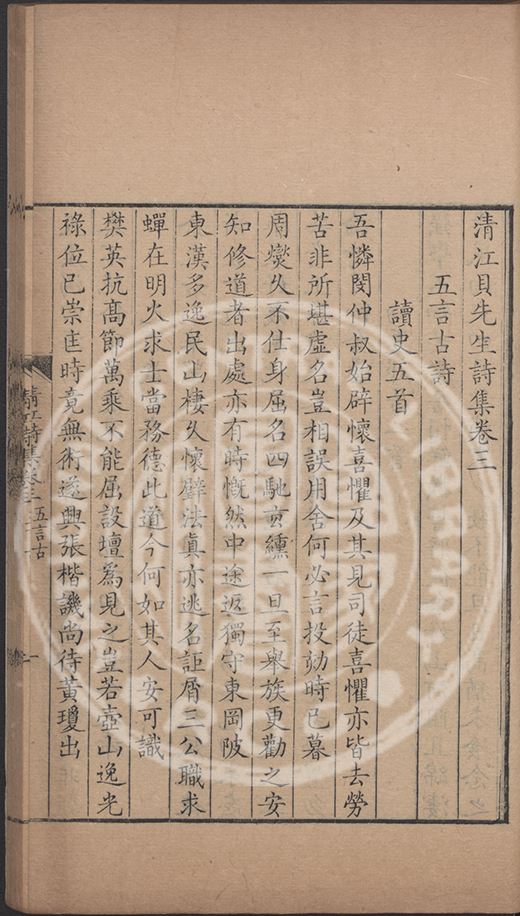 清江貝先生詩集卷三
五言古詩
讀史五首
吾憐閔仲叔始辟懷喜懼及其見司徒喜懼亦皆去勞
苦非所堪虛名豈相誤用舍何必言投劾時已暮
周燮久不仕身屈名四馳玄纁一旦至舉族更勸之安
知修道者出處亦有時慨然中途返獨守東岡陂
東漢多逸民山棲久懷璧法真亦逃名詎屑三公職求
蟬在明火求士當務德此道今何如其人安可識
樊英抗髙節萬乘不能屈設壇為見之豈若壺山逸光
祿位已崇匡時竟無術遂興張楷譏尚待黃瓊出
清江詩集卷三 五言古 一